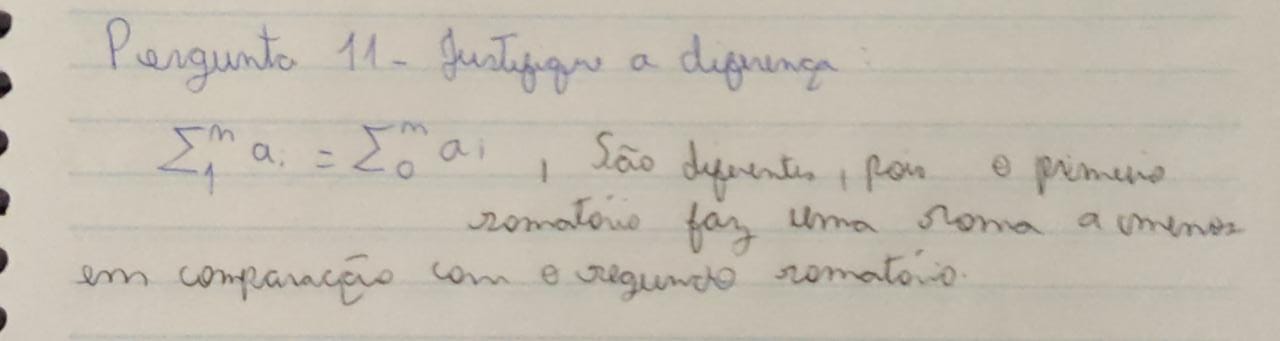 Pergunta 11 - Justifique a diferença:
∑₁ⁿ aᵢ = ∑₀ⁿ aᵢ , São diferentes, pois o primeiro
somatório faz uma soma a menos
em comparação com o segundo somatório.